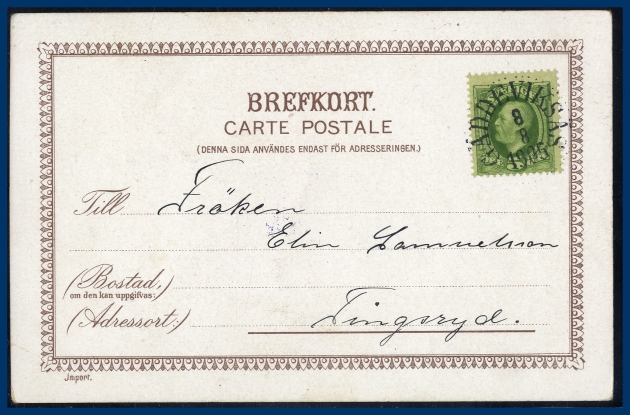 BREFKORT.
CARTE POSTALE
(DENNA SIDA ANVÄNDES ENDAST FÖR ADRESSERINGEN.)
GADDEVIKSÅS
8
8
1905
Till Fröken
Elin Samuelsson
(Bostad,
om den kan uppgifvas:)
(Adressort:) Tingsryd.
Import.